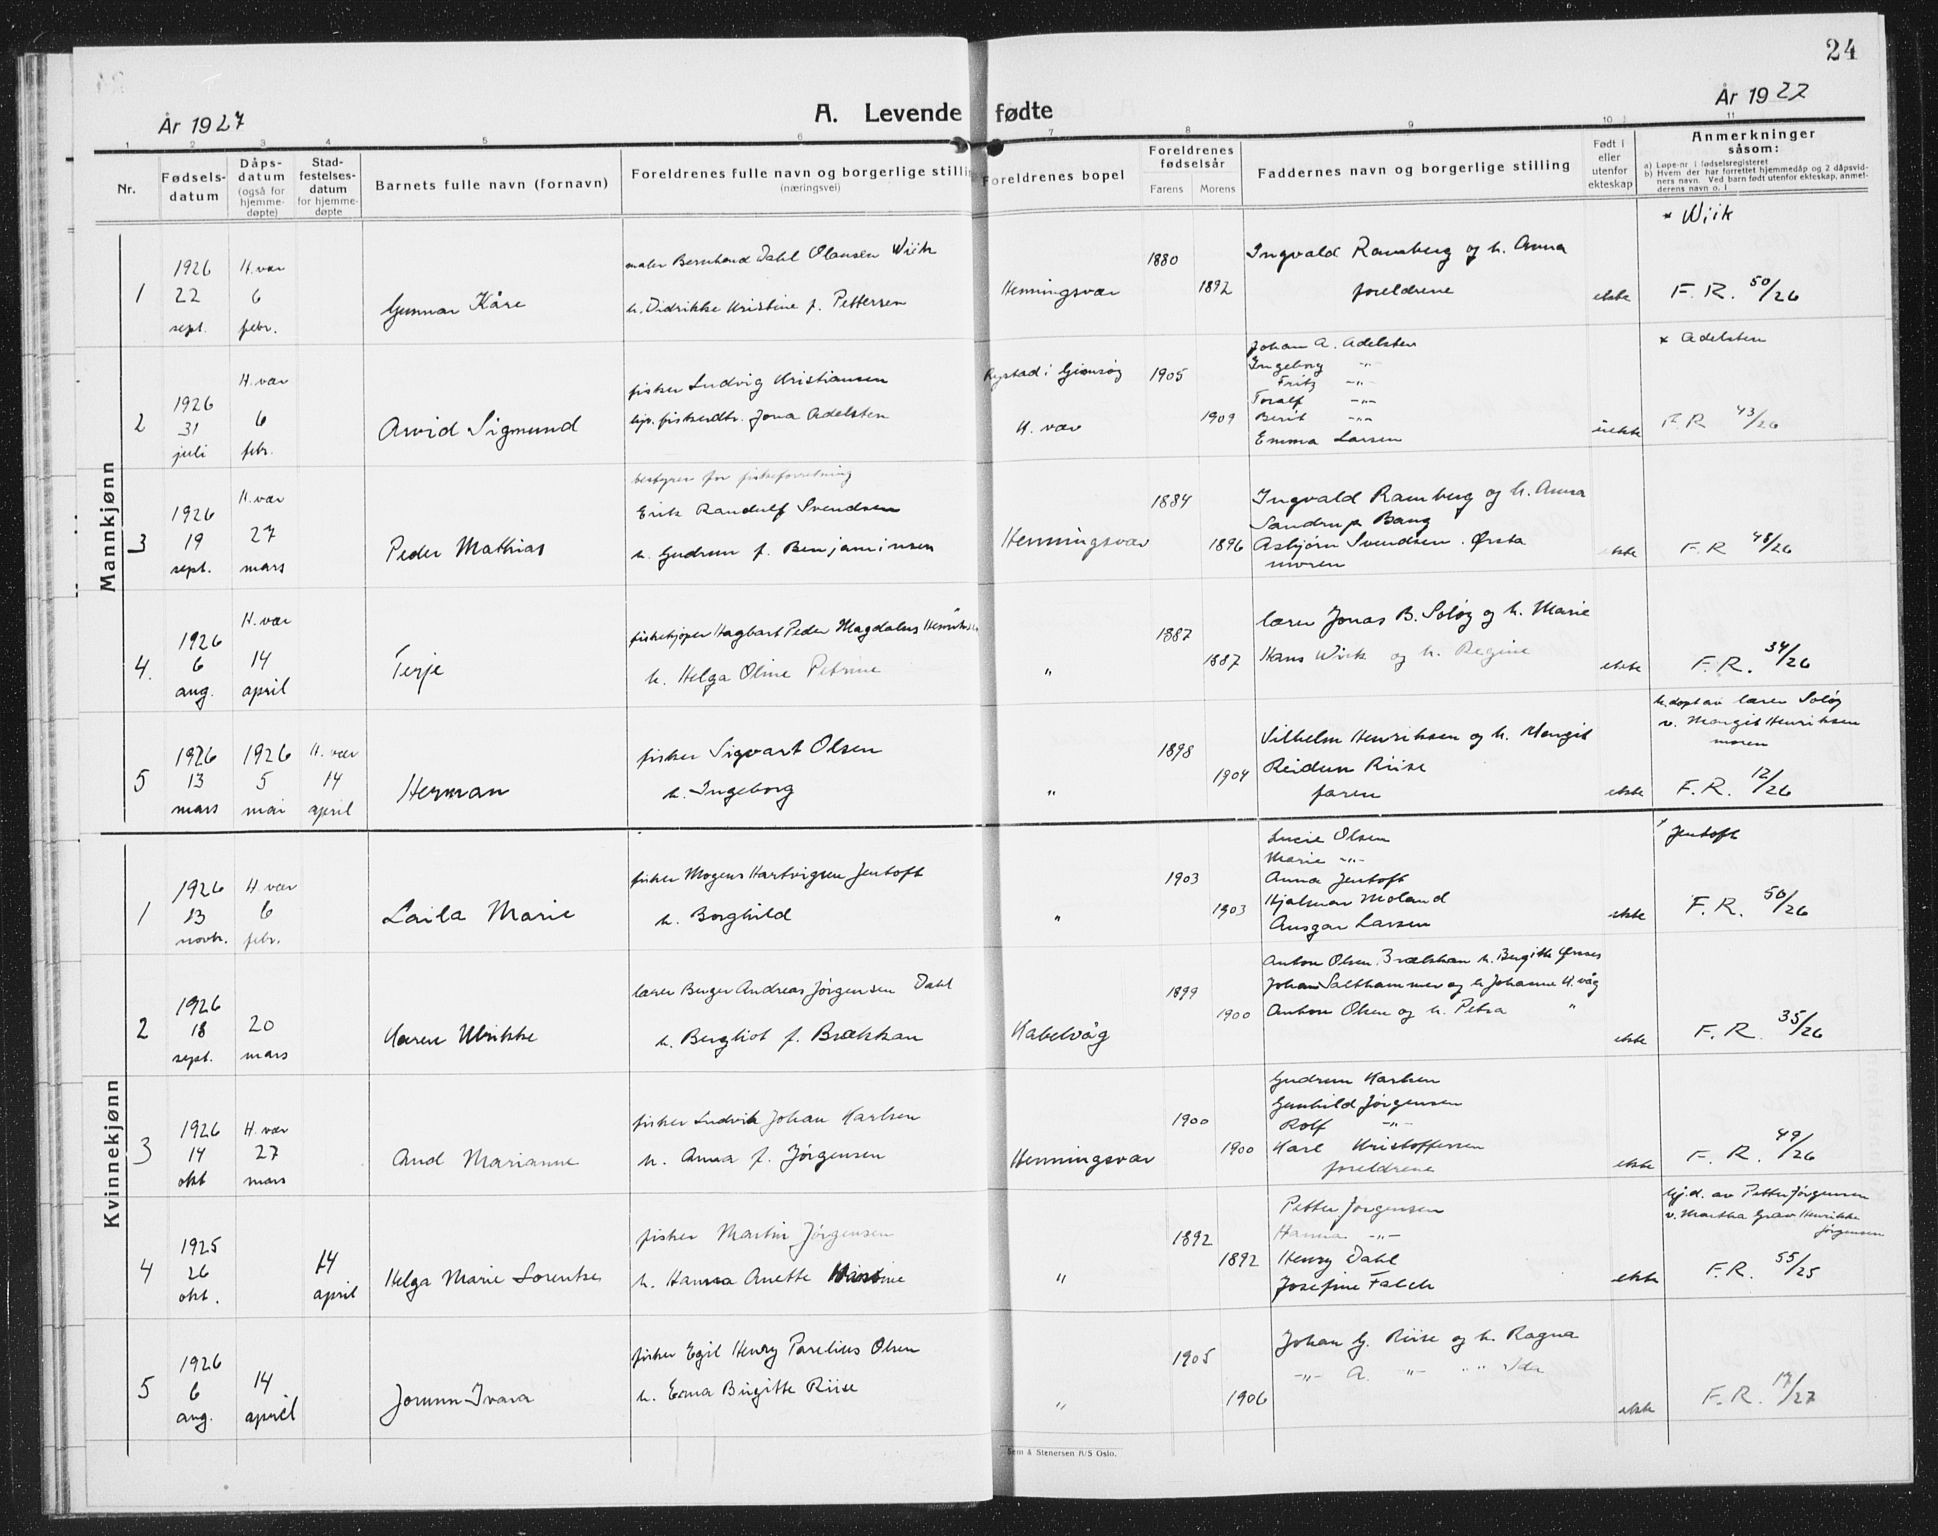 24
År 1927
A. Levende fødte
År 1927
1 2 3 4 5 6 7 8 9 10 11
Nr.
Fødselsdatum
Dåpsdatum (også for hjemmedøpte)
Stadfestelsesdatum for hjemmedøpte
Barnets fulle navn (fornavn)
Foreldrenes fulle navn og borgerlige stilling (næringsvei)
Foreldrenes bopel
Foreldrenes fødselsår
Farens Morens
Faddernes navn og borgerlige stilling
Født i eller utenfor ekteskap
Anmerkninger såsom:
a) Løpe-nr. i fødselsregisteret
b) Hvem der har forrettet hjemmedåp og 2 dåpsvidners navn. Ved barn født utenfor ekteskap, anmelderens navn o. l
Mannkjønn
* Wiik
1
1926 22 sept.
H. vær 6 febr.
Gunnar Kåre
maler Bernhard Dahl Olausen Wiik
h. Didrikke Kristine f. Pettersen
Henningsvær
1880
1892
Ingvald Ramberg og h. Anna
foreldrene
ekte
F. R. 50/26
* Adelsten
2
1926 31 juli
H. vær 6 febr.
Arvid Sigmund
fisker Ludvig Kristiansen
fiskerdtr. Jona Adelsten
Rystad i Gimsøy
H. vær
1905
1909
Johan A. Adelsten
Ingeborg -"-
Fritz -"-
Toralf -"-
Berit -"-
Emma Larsen
uekte
F. R 43/26
3
1926 19 sept.
H. vær 27 mars
Peder Mathias
bestyrer for fiskeforretning
Erik Randulf Svendsen
h. Gudrun f. Benjaminsen
Henningsvær
1884
1896
Ingvald Ramberg og h. Anna
Sandrup Bang
Asbjørn Svendsen. Ørsta
moren
ekte
F. R 48/26
4.
1926 6 aug.
H. vær 14 april
Terje
fiskekjøper Hagbart Peder Magdalus Henriksen
h. Helga Oline Petrine
"
1887
1887
lærer Jonas B. Soløy og h. Marie
Hans Wiik og h. Regine
ekte
F. R. 34/26
5
1926 13 mars
1926 5 mai
H. vær 14 april
Herman
fisker Sigvart Olsen
h. Ingeborg
"
1898
1904
Vilhelm Henriksen og h. Margit
Reidun Riise
faren
ekte
h. døpt av lærer Soløy
v. Margit Henriksen
moren
F. R. 12/26
Kvinnekjønn
Jentoft
1
1926 13 novbr.
H. vær 6 febr.
Laila Marie
fisker Mogens Hartvigsen Jentoft
h. Borghild
"
1903
1903
Lucie Olsen
Marie -"-
Anna Jentoft
Hjalmar Moland
Ansgar Larsen
ekte
F. R. 50/26
2
1926 18 sept.
20 mars
Karen Ulrikke
lærer Berger Andreas Jørgensen Dahl
h. Bergliot f. Brækkan
Kabelvåg
1899
1900
Anton Olsen. Brækkan h. Bergitte
Johan Salthammer og h Johanne K. våg
Anton Olsen og h. Petra "
ekte
F. R. 35/26
3
1926 14 okt
H. vær 27 mars
Aud Marianne
fisker Ludvik Johan Karlsen
h. Anna f. Jørgensen
Henningsvær
1900
1900
Gudrun Karlsen
Gunhild Jørgensen
Rolf -"-
Karl Kristoffersen
foreldrene
ekte
F. R. 49/26
4
1925 26 okt.
14 april
Helga Marie Lorentse
fisker Martin Jørgensen
h. Hanna Anette
"
1892
1892
Petter Jørgensen
Hanna -"-
Henry Dahl
Josefine Falch
ekte
hj. d. av Petter Jørgensen
v. Martha Grav Henrikke
Jørgensen
F. R. 55/25
5
1926 6 aug.
14 april
Jorunn Ivara
fisker Egil Henry Parelius Olsen
h. Erna Birgitte Riise
"
1905
1906
Johan G. Riise og h. Ragna
-"- A. -"- " " Ida
ekte
F. R. 17/27
Sem & Stenersen A/S Oslo.